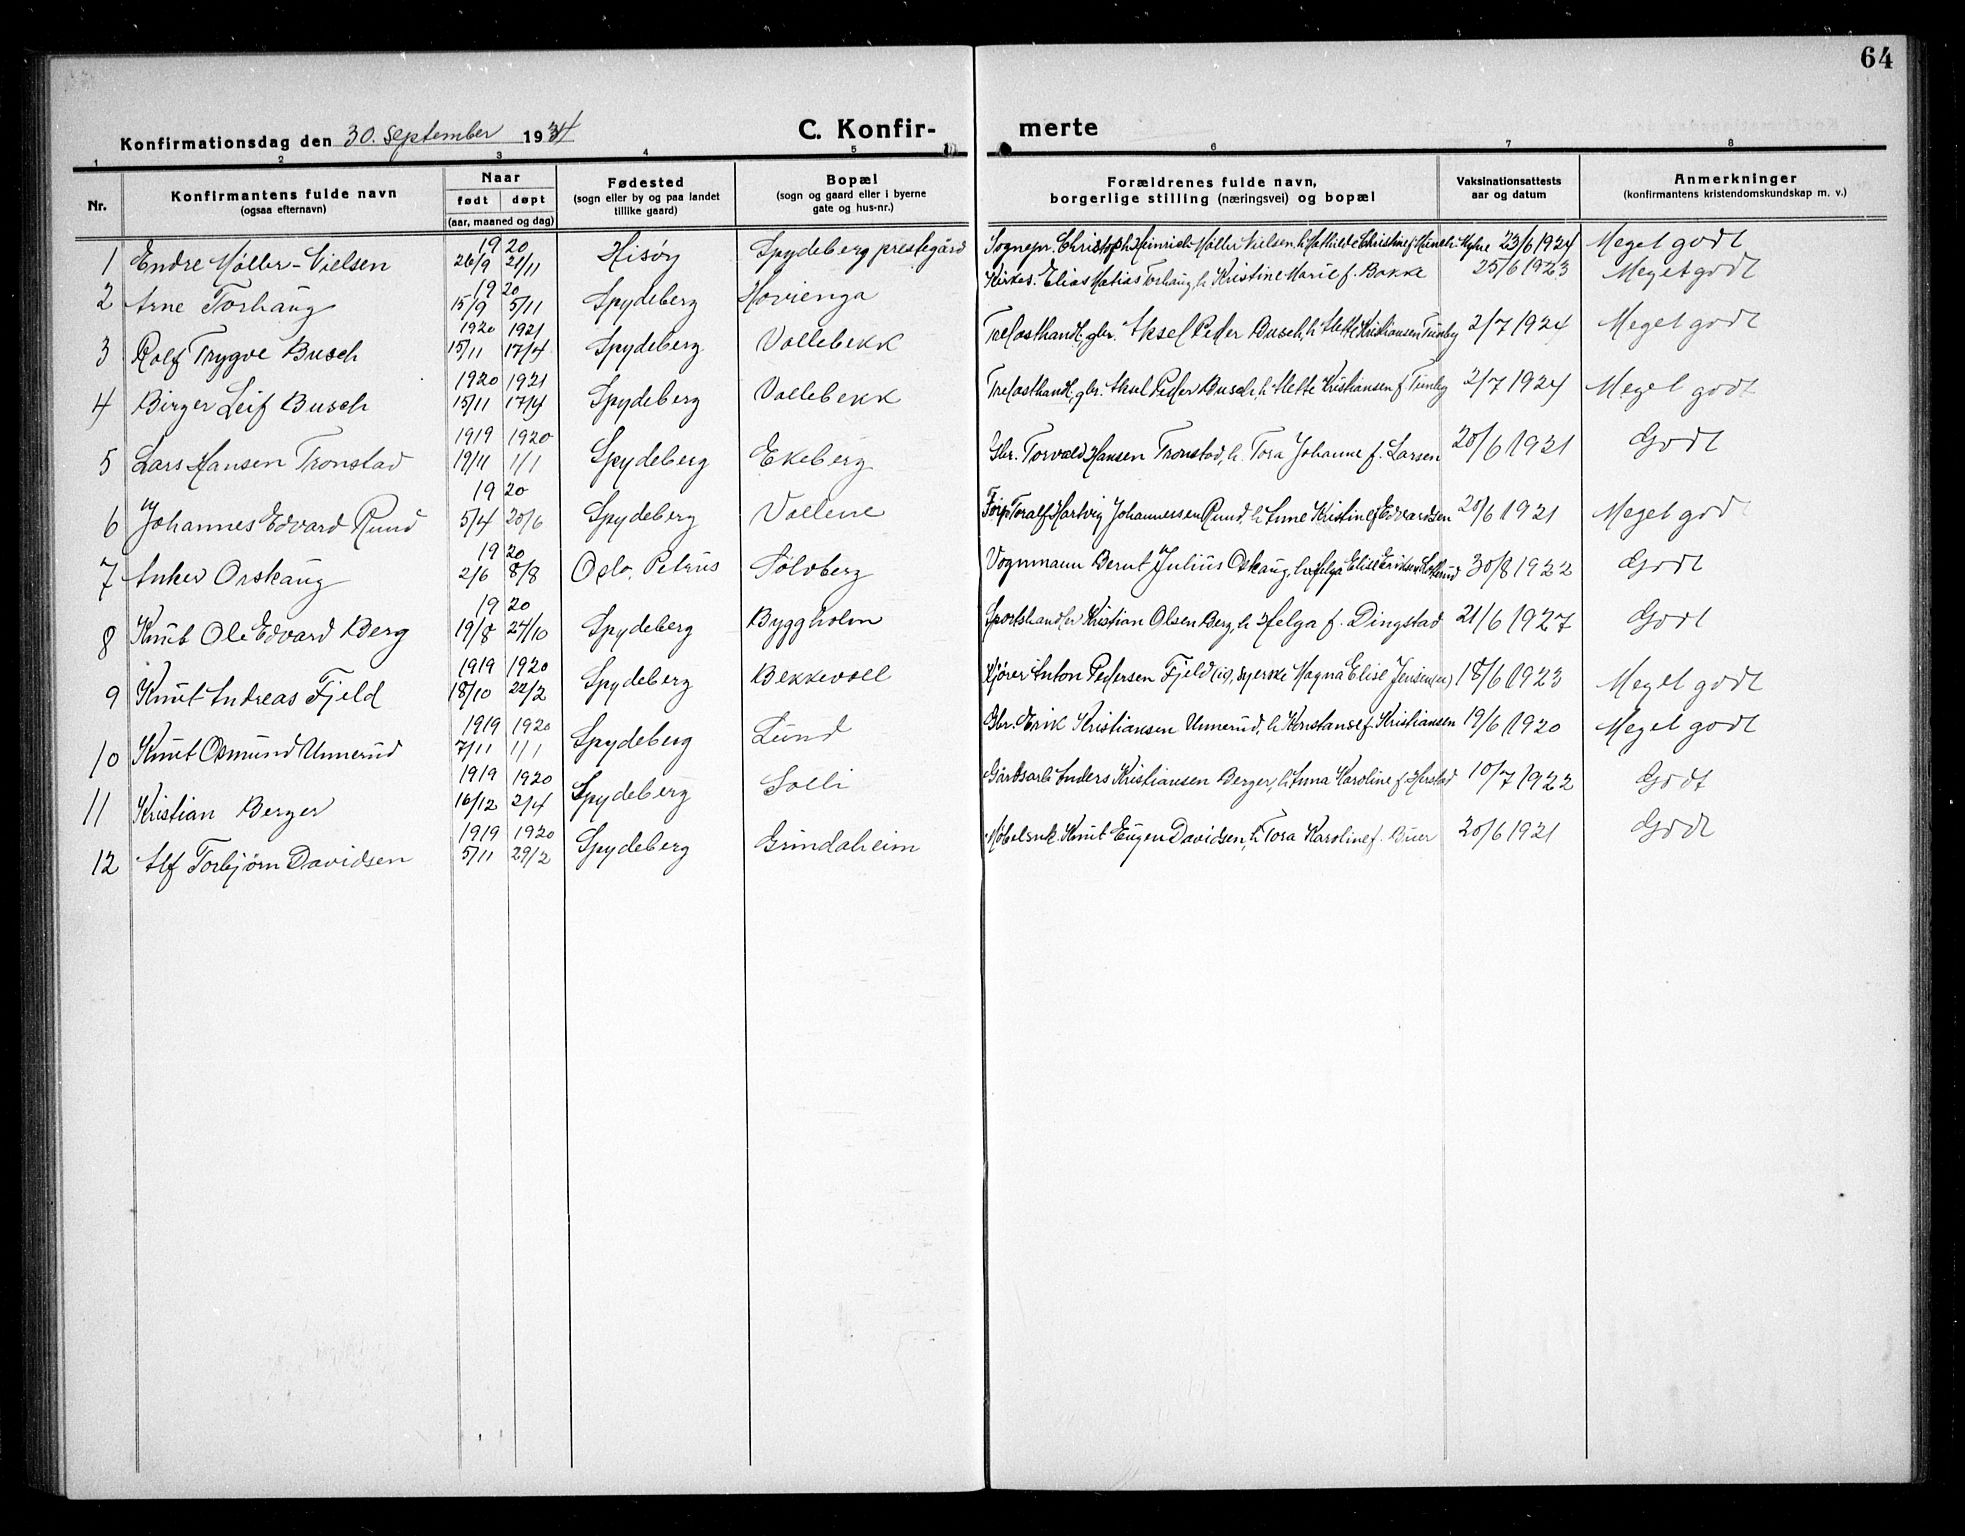 64
Konfirmationsdag den 30. September 1934 C. Konfir- merte
1 2 3 4 5 6 7 8
Nr. Konfirmantens fulde navn (ogsaa efternavn) Naar født døpt (aar, maaned og dag) Fødested (sogn eller by og paa landet tillike gaard) Bopæl (sogn og gaard eller i byerne gate og hus-nr.) Forældrenes fulde navn, borgerlige stilling (næringsvei) og bopæl Vaksinationsattests aar og datum Anmerkninger (konfirmantens kristendomskundskap m. v.)
1 Endre Møller-Nielsen 1920 26/9 21/11 Hisøy Spydeberg prestegård Sognepr. Christoph Heinrich Møller Nielsen, h. Mathilde Christine f. 23/6 1924 Meget godt
2 Arne Torhaug 1920 15/9 5/11 Spydeberg Hovienga Kirkes. Elias Matias Torhaug, h Kristine Marie f. Bakke 25/6 1923 Meget godt
3 Rolf Trygve Busch 1920 15/11 1921 17/4 Spydeberg Vollebekk Trelasthandl., gbr. Aksel Peder Busch, h. Mette Kristiansen 2/7 1924 Meget godt
4 Birger Leif Busch 1920 15/11 1921 17/4 Spydeberg Vollebekk Trelasthandl., gbr. Aksel Peder Busch, h. Mette Kristiansen f 2/7 1924 Meget godt
5 Lars Hansen Tronstad 1919 19/11 1920 1/1 Spydeberg Ekeberg Gbr. Torvald Hansen Tronstad, h. Tora Johanne f. Larsen 20/6 1921 Godt
6 Johannes Edvard Rund 1920 5/4 20/6 Spydeberg Vollene Forp. Toralf Hartvig Johannessen Rund, h. Anne Kristine f Edvardsen 20/6 1921 Meget godt
7 Anker Orskaug 1920 2/6 8/8 Oslo, Petrus Sölvberg Vognmann Bernt Julius Oskaug, h. Helga Elise Eriksen 30/8 1922 Godt
8 Knut Ole Edvard Berg 1920 19/8 24/10 Spydeberg Byggholm Sportshandler Kristian Olsen Berg, h Helga f. Dingstad 21/6 1927 Godt
9 Knut Andreas Fjeld 1919 18/10 1920 22/2 Spydeberg Bekkevoll Kjörer Anton Pedersen Fjeld (ig), syerske Magna Elise Jensen 18/6 1923 Meget godt
10 Knut Osmund Unnerud 1919 7/11 1920 1/1 Spydeberg Lund Gbr. Erik Kristiansen Unnerud, h Konstanse f. Kristiansen 19/6 1920 Meget godt
11 Kristian Berger 1919 16/12 1920 2/4 Spydeberg Solli Gårdsarb. Anders Kristiansen Berger, h. Anna Karoline f. Herstad 10/7 1922 Godt
12 Alf Torbjørn Davidsen 1919 5/11 1920 29/2 Spydeberg Grindaheim Møbelsnk. Knut Eugen Davidsen, h. Tora Karoline f. Buer 20/6 1921 Godt